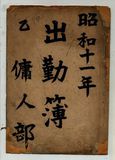 昭和十一年
出勤簿
乙 傭人部